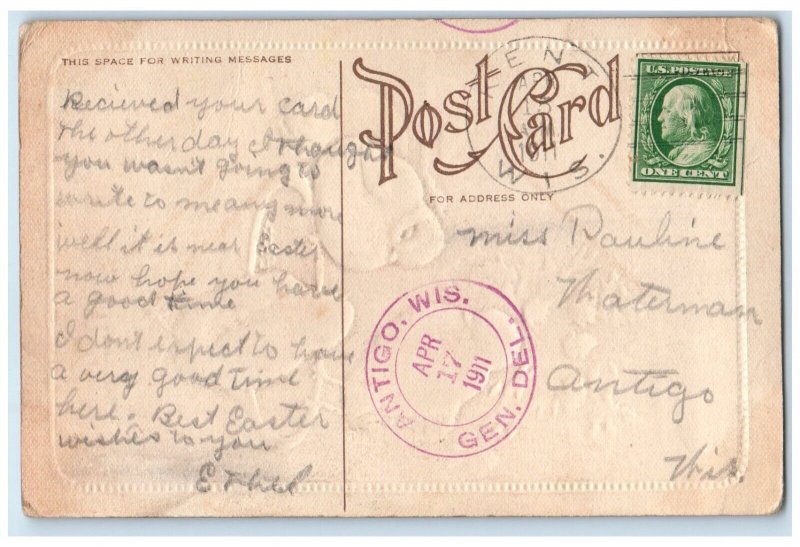 THIS SPACE FOR WRITING MESSAGES
Post Card
FOR ADDRESS ONLY
U.S. POSTAGE
ONE CENT
KENT
AP
1911
WIS.
Recieved your card
the other day I thought
you wasn't going to
write to me any more
well it is near Easter
now hope you have
a good time
I don't expect to have
a very good time
here. Best Easter
wishes to you
Ethel
miss Pauline
Waterman
Antigo
Wis.
ANTIGO, WIS.
APR
17
1911
GEN. DEL.